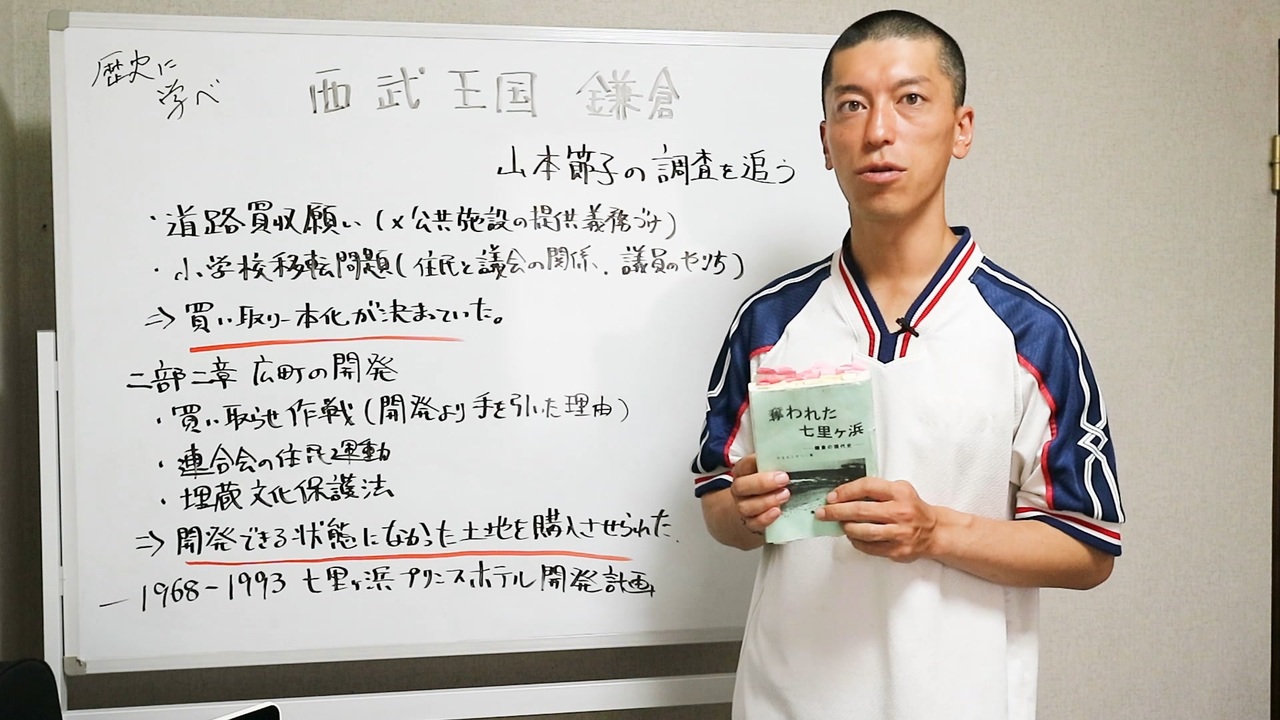 歴史に
学べ
西武王国 鎌倉
山本節子の調査を追う
・道路買収願い(×公共施設の提供義務づけ)
・小学校移転問題(住民と議会の関係、議員のやりち)
⇒買い取り一本化が決まっていた。
二部二章 広町の開発
・買い取らせ作戦(開発より手を引いた理由)
・連合会の住民運動
・埋蔵文化保護法
⇒開発できる状態になかった土地を購入させられた.
—1968-1993 七里ヶ浜プリンスホテル開発計画
奪われた
七里ヶ浜
鎌倉の現代史